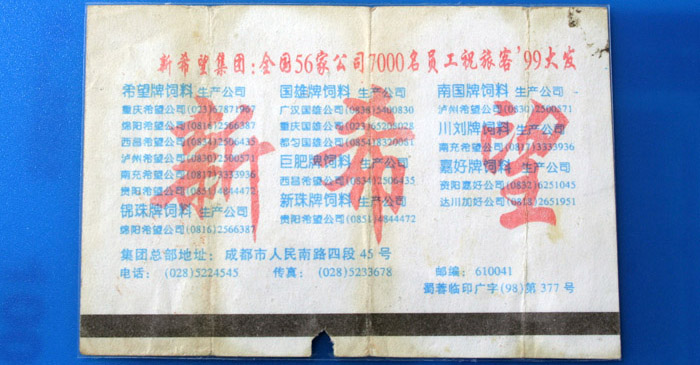 新希望集团:全国56家公司7000名员工祝旅客'99大发
希望牌饲料 生产公司
重庆希望公司(023)67871967
绵阳希望公司(0816)2566387
西昌希望公司(0834)2506435
泸州希望公司(0830)2500571
南充希望公司(0817)3333936
贵阳希望公司(0851)4844472
锦珠牌饲料 生产公司
绵阳希望公司(0816)2566387
国雄牌饲料 生产公司
广汉国雄公司(0838)5400830
重庆国雄公司(023)65208028
都匀国雄公司(0854)8320051
巨肥牌饲料 生产公司
西昌希望公司(0834)2506435
新珠牌饲料 生产公司
贵阳希望公司(0851)4844472
南国牌饲料 生产公司
泸州希望公司(0830)2500571
川刘牌饲料 生产公司
南充希望公司(0817)3333936
嘉好牌饲料 生产公司
资阳嘉好公司(0832)6251045
达川加好公司(0818)2651951
新希望
集团总部地址: 成都市人民南路四段 45 号
电话: (028)5224545 传真: (028)5233678 邮编: 610041
蜀蓉临印广字(98)第 377 号